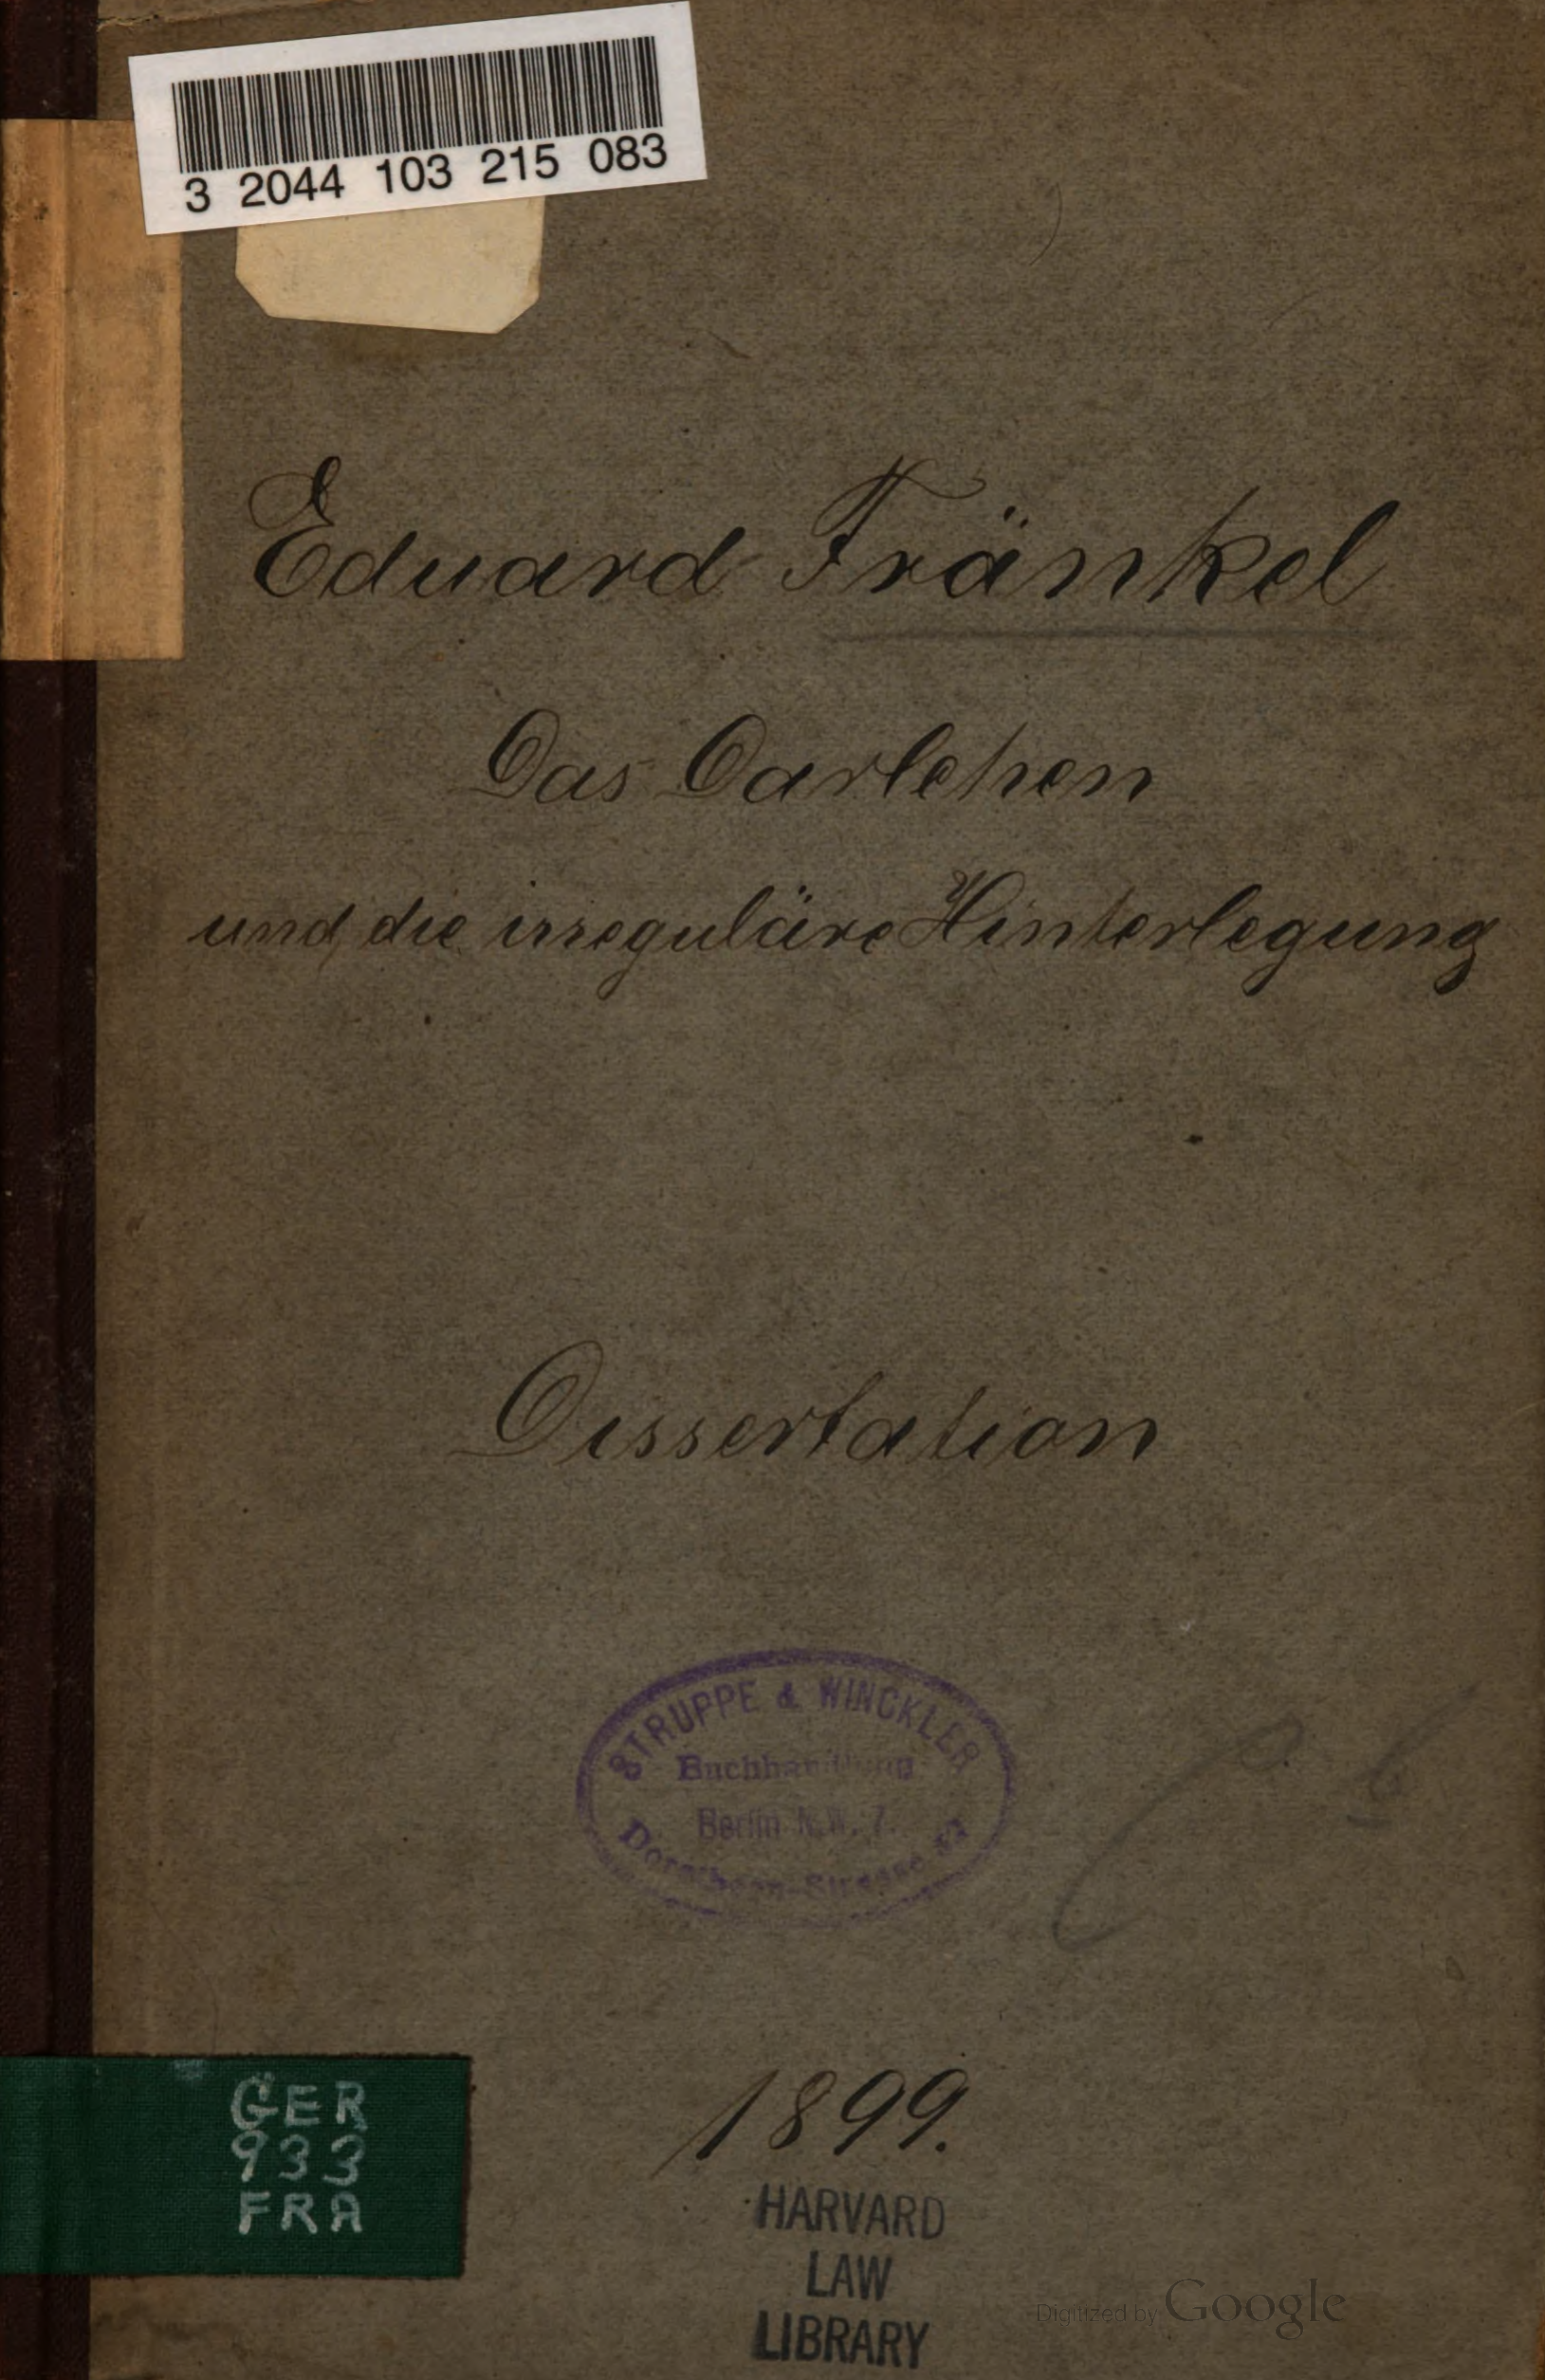 3 2044 103 215 083
Eduard Fränkel
Das Darlehen
und die irreguläre Hinterlegung
Dissertation
STRUPPE & WINCKLER
Buchhandlung
Berlin N.W. 7.
Dorotheen-Strasse
1899.
HARVARD
LAW
LIBRARY
GER
933
FRA
Digitized by Google